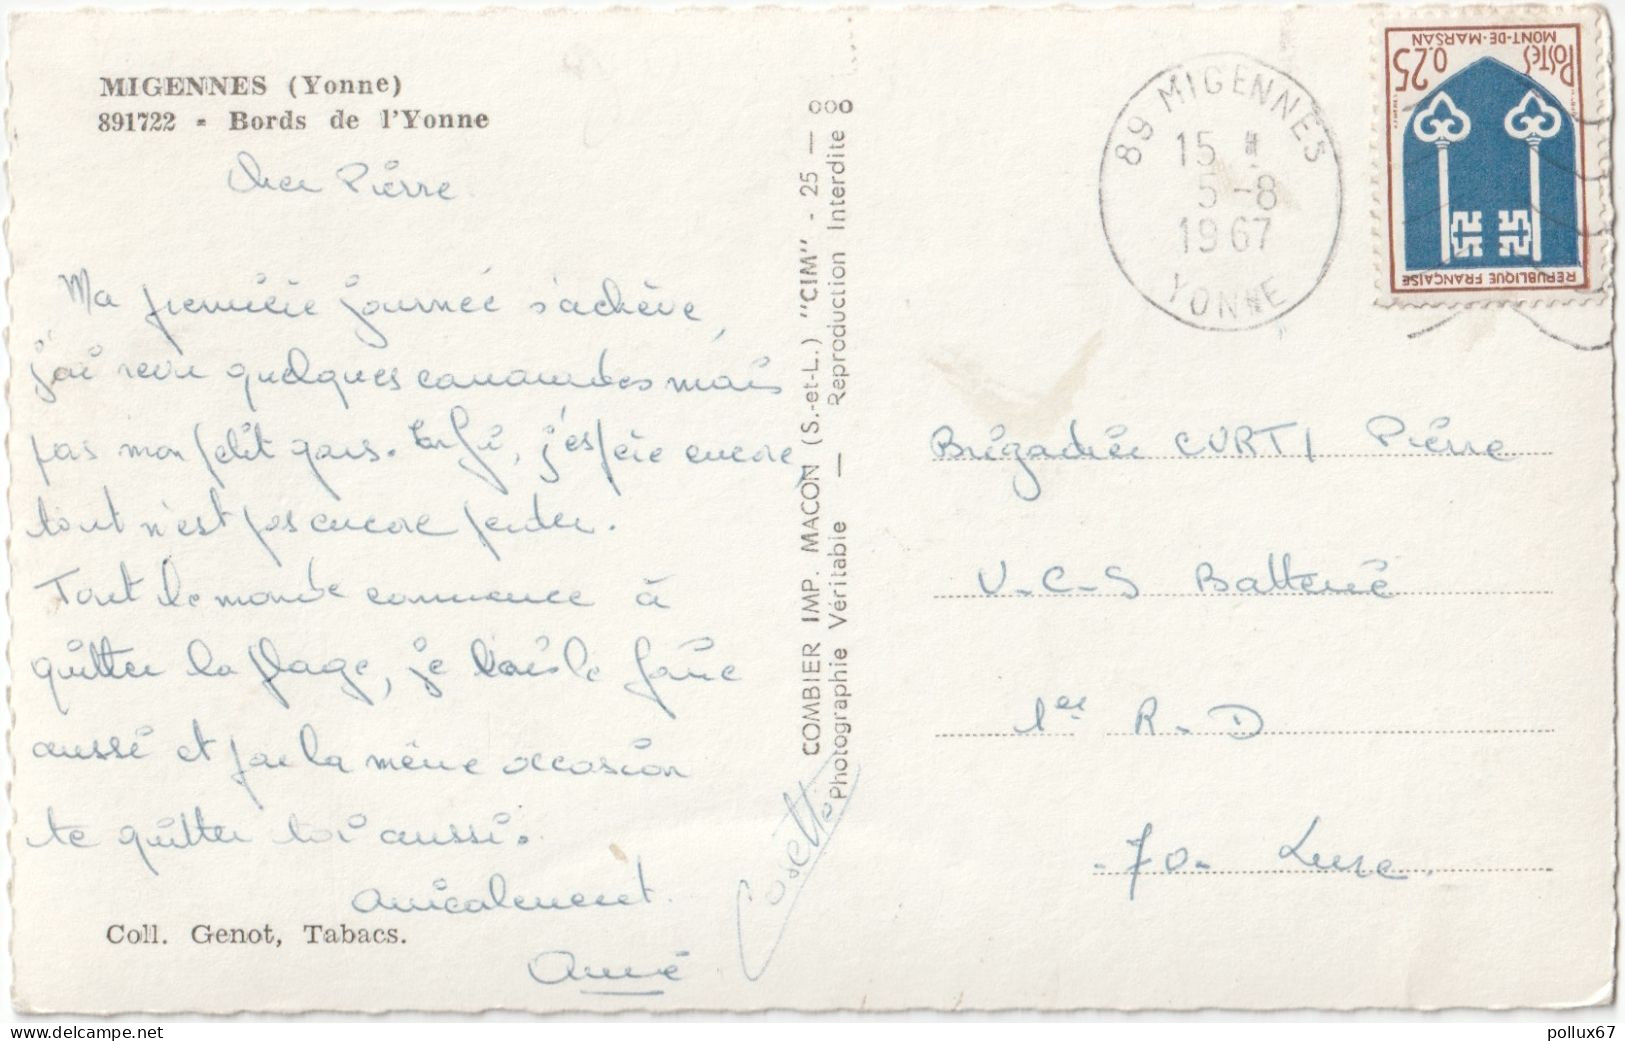 MIGENNES (Yonne)
891722 - Bords de l'Yonne
Cher Pierre
Ma première journée s'achève,
j'ai revu quelques camarades mais
pas mon petit gars. Enfin, j'espère encore,
tout n'est pas encore perdu.
Tout le monde commence à
quitter la plage, je vais le faire
aussi et par la même occasion
te quitter toi aussi.
Amicalement.
Aimé
Cosette
Coll. Genot, Tabacs.
COMBIER IMP. MACON (S.-et-L.) "CIM" - 25 —
Photographie Véritable — Reproduction Interdite
89 MIGENNES
15 H
5 - 8
1967
YONNE
POSTES 0,25
MONT-DE-MARSAN
REPUBLIQUE FRANÇAISE
Brigadier CURTI Pierre
U-C-S Batterie
1er R-D
-70- Lure.
delcampe.net
pollux67